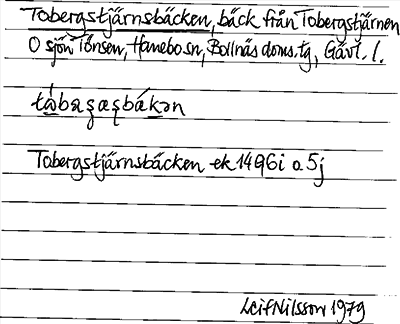 Tobergstjärnsbäcken, bäck från Tobergstjärnen
O sjön Tönsen, Hanebo sn, Bollnäs doms.tg, Gävl. l.
Tobergstjärnsbäcken ek 14G6i o 5j
Leif Nilsson 1979